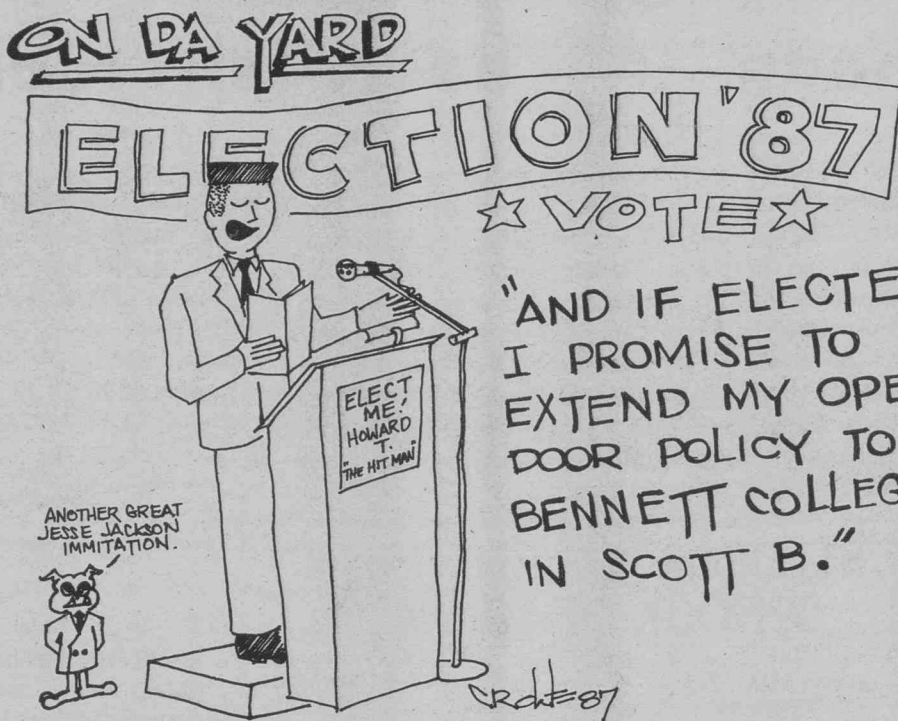 ON DA YARD
ELECTION '87
VOTE
"AND IF ELECTE
I PROMISE TO
EXTEND MY OPE
DOOR POLICY TO
BENNETT COLLEG
IN SCOTT B."
ELECT
ME!
HOWARD
T.
"THE HIT MAN"
ANOTHER GREAT
JESSE JACKSON
IMMITATION.
CROWE 87